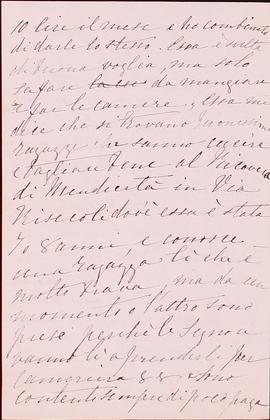 10 lire il mese e ho combinato
di darle lo stesso. Essa è svelta
di buona voglia, ma solo
sa fare da mangiare
e far le camere. Essa mi
dice che si trovano buonissime
ragazze che sanno cucire
e tagliare bene al Ricovero
di Mendicità in Via
dov'è essa è stata
8 anni, e conosce
una ragazza lì che è
molto brava, ma da un
momento o l'altro sono
prese perchè le Signore
vanno lì a prenderli per
cameriera &&. Sono
contenti sempre di poca paga